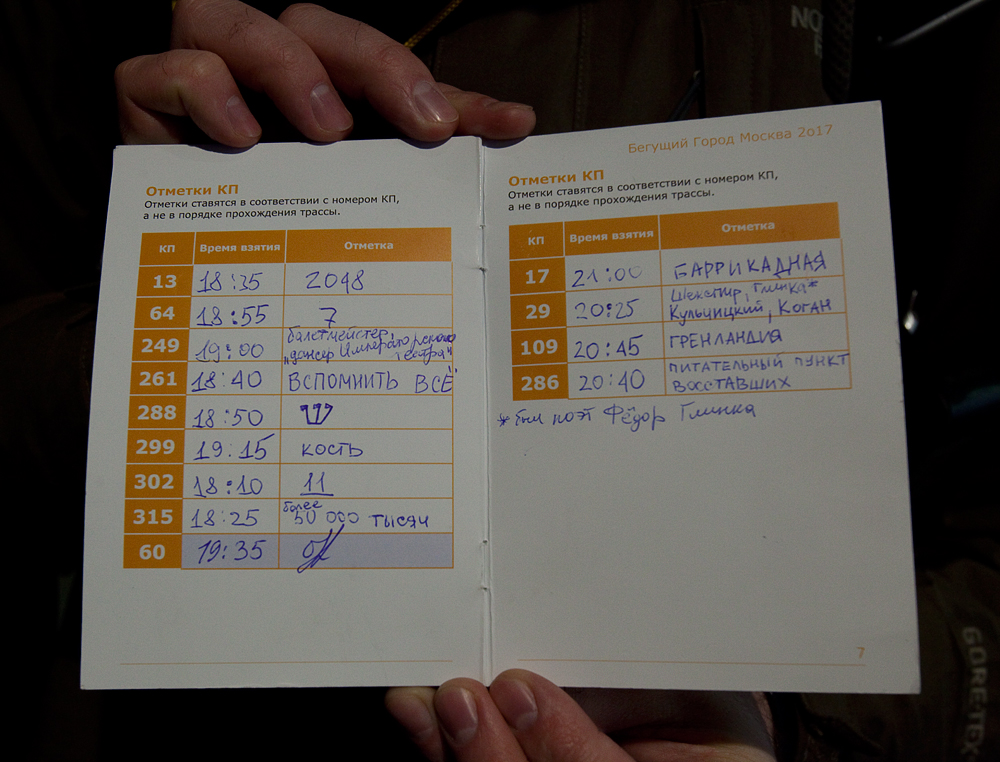 Отметки КП
Отметки ставятся в соответствии с номером КП,
а не в порядке прохождения трассы.
КП Время взятия Отметка
13 18:35 2048
64 18:55 7
249 19:00 балетмейстер,
"дансер Императорского
театра"
261 18:40 ВСПОМНИТЬ ВСЁ"
288 18:50
299 19:15 КОСТЬ
302 18:10 11
315 18:25 более
50 000 тысяч
60 19:35
Бегущий Город Москва 2017
Отметки КП
Отметки ставятся в соответствии с номером КП,
а не в порядке прохождения трассы.
КП Время взятия Отметка
17 21:00 БАРРИКАДНАЯ
29 20:25 Шекспир, Глинка*
Кульчицкий, Коган
109 20:45 ГРЕНЛАНДИЯ
286 20:40 ПИТАТЕЛЬНЫЙ ПУНКТ
ВОССТАВШИХ
* был поэт Фёдор Глинка
7
NO
GORE-TEX